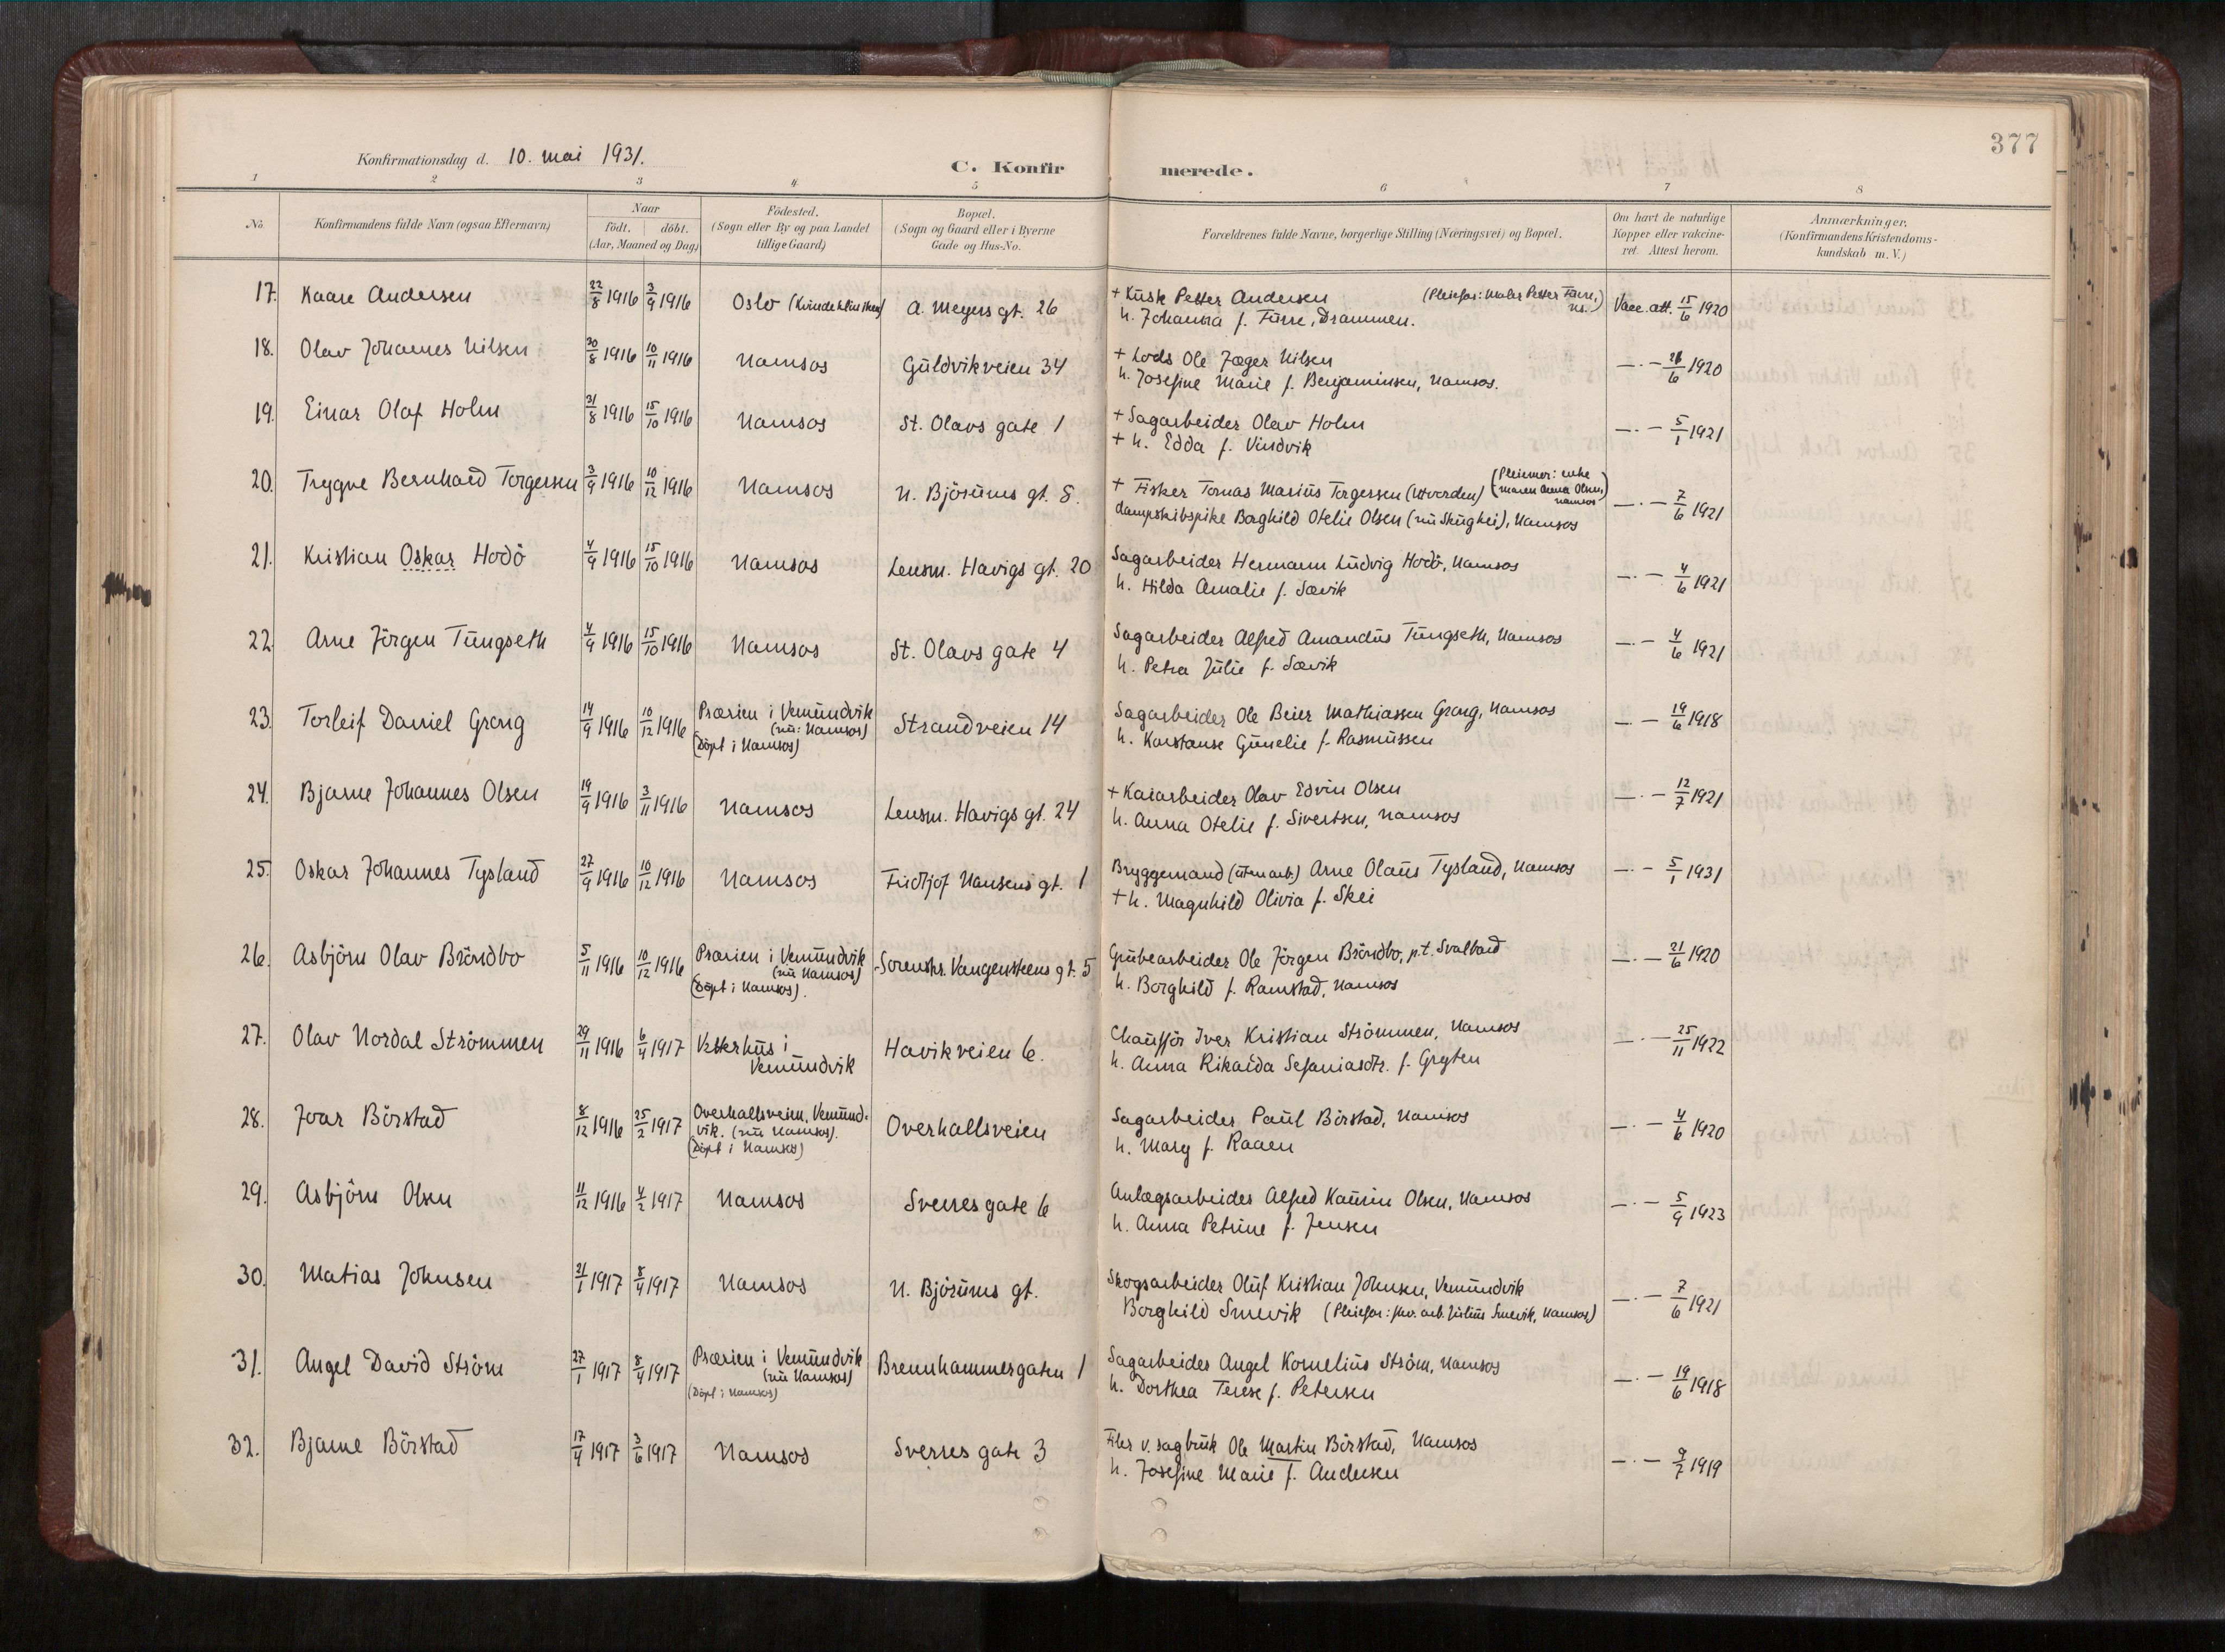 377
Konfirmationsdag d. 10. mai 1931.
C. Konfirmerede.
1 2 3 4 5 6 7 8
No
Konfirmandens fulde Navn (ogsaa Efternavn)
Naar
födt. döbt.
(Aar, Maaned og Dag)
Födested.
(Sogn eller By og paa Landet
tillige Gaard)
Bopæl.
(Sogn og Gaard eller i Byerne
Gade og Hus-No.
Forældrenes fulde Navne, borgerlige Stilling (Næringsvei) og Bopæl.
Om havt de naturlige
Kopper eller vakcine-
ret. Attest herom.
Anmærkninger.
(Konfirmandens Kristendoms-
kundskab m. V.)
17. Kaare Andersen 22/8 1916 3/9 1916 Oslo (Kvindeklinikken) A. Meyers gt. 26 + Kusk Petter Andersen (Pleiefar: Maler Petter Furre, Ns.) Vacc. att. 15/6 1920
h. Johanna f. Furre, Drammen.
18. Olav Johannes Nilsen 30/8 1916 10/11 1916 Namsos Guldvikveien 34 + Lods Ole Jæger Nilsen —·— 21/6 1920
h. Josefine Marie f. Benjaminsen, Namsos.
19. Einar Olaf Holm 31/8 1916 15/10 1916 Namsos St. Olavs gate 1 + Sagarbeider Olav Holm —·— 5/1 1921
+ h. Edda f. Vindvik
20. Trygve Bernhard Torgersen 3/9 1916 10/12 1916 Namsos N. Björums gt. 8. + Fisker Tomas Marius Torgersen (Utvorden) (Pleiemor: enke Maren Anna Olsen, Namsos) —·— 7/6 1921
dampskibspike Borghild Otelie Olsen (nu Skughei), Namsos
21. Kristian Oskar Hodö 4/9 1916 15/10 1916 Namsos Lensm. Havigs gt. 20 Sagarbeider Hermann Ludvig Hodö, Namsos —·— 4/6 1921
h. Hilda Amalie f. Sævik
22. Arne Jörgen Tungseth 4/9 1916 15/10 1916 Namsos St. Olavs gate 4 Sagarbeider Alfred Amandus Tungseth, Namsos —·— 4/6 1921
h. Petra Julie f. Sævik
23. Torleif Daniel Grong 14/9 1916 10/12 1916 Prærien i Vemundvik Strandveien 14 Sagarbeider Ole Beier Mathiassen Grong, Namsos —·— 19/6 1918
(nu: Namsos)
(Döpt i Namsos) h. Konstanse Gunelie f. Rasmussen
24. Bjarne Johannes Olsen 19/9 1916 3/11 1916 Namsos Lensm. Havigs gt. 24 + Kaiarbeider Olav Edvin Olsen —·— 12/7 1921
h. Anna Otelie f. Sivertsen, Namsos
25. Oskar Johannes Tysland 27/9 1916 10/12 1916 Namsos Fridtjof Nansens gt. 1 Bryggemand (uten arb.) Arne Olaus Tysland, Namsos —·— 5/1 1931
+ h. Magnhild Olivia f. Skei
26. Asbjörn Olav Bröndbo 5/11 1916 10/12 1916 Prærien i Vemundvik Sorenskr. Vangensteens gt. 5 Grubearbeider Ole Jörgen Bröndbo, p.t. Svalbard —·— 21/6 1920
(nu Namsos)
(Döpt i Namsos). h. Borghild f. Ramstad, Namsos
27. Olav Nordal Strömmen 29/11 1916 6/4 1917 Vesterhus i Havikveien 6. Chaufför Iver Kristian Strömmen, Namsos —·— 25/11 1922
Vemundvik h. Anna Rikarda Sefaniasdtr. f. Gryten
28. Joar Börstad 8/12 1916 25/2 1917 Overhallsveien, Vemund- Overhallsveien Sagarbeider Paul Börstad, Namsos —·— 4/6 1920
vik. (nu Namsos).
(Döpt i Namsos) h. Mary f. Raaen
29. Asbjörn Olsen 11/12 1916 4/2 1917 Namsos Sverres gate 6 Anlægsarbeider Alfred Kaurin Olsen, Namsos —·— 5/9 1923
h. Anna Petrine f. Jensen
30. Matias Johnsen 21/1 1917 8/4 1917 Namsos N. Björums gt. Skogsarbeider Oluf Kristian Johnsen, Vemundvik —·— 7/6 1921
Borghild Smevik (Pleiefar: arb. Julius Smevik, Namsos)
31. Angel David Ström 27/1 1917 8/4 1917 Prærien i Vemundvik Brennhammergaten 1 Sagarbeider Angel Kornelius Ström, Namsos —·— 19/6 1918
(nu Namsos)
(Döpt i Namsos) h. Dorthea Terese f. Petersen
32. Bjarne Börstad 17/4 1917 3/6 1917 Namsos Sverres gate 3 Filer v. sagbruk Ole Martin Börstad, Namsos —·— 9/7 1919
h. Josefine Marie f. Andersen